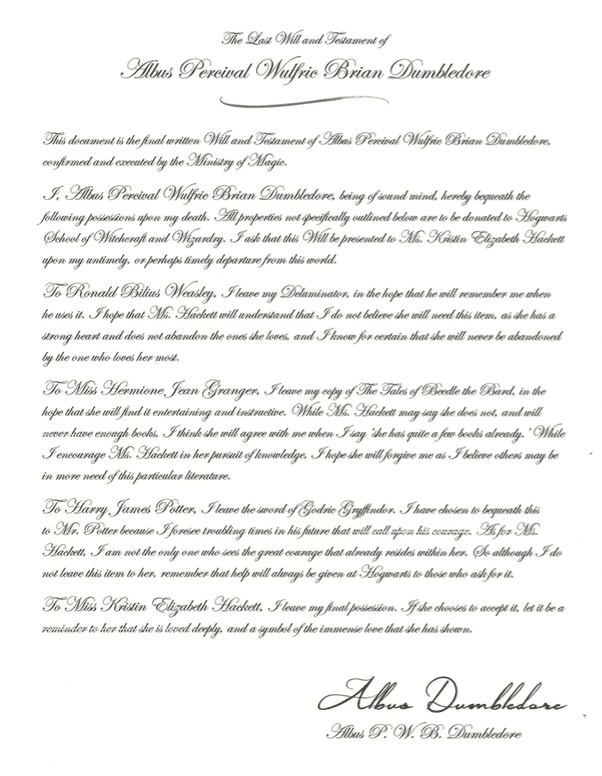 The Last Will and Testament of
Albus Percival Wulfric Brian Dumbledore
This document is the final written Will and Testament of Albus Percival Wulfric Brian Dumbledore,
confirmed and executed by the Ministry of Magic.
I, Albus Percival Wulfric Brian Dumbledore, being of sound mind, hereby bequeath the
following possessions upon my death. All properties not specifically outlined below are to be donated to Hogwarts
School of Witchcraft and Wizardry. I ask that this Will be presented to Ms. Kristin Elizabeth Hackett
upon my untimely, or perhaps timely departure from this world.
To Ronald Bilius Weasley, I leave my Deluminator, in the hope that he will remember me when
he uses it. I hope that Ms. Hackett will understand that I do not believe she will need this item, as she has a
strong heart and does not abandon the ones she loves, and I know for certain that she will never be abandoned
by the one who loves her most.
To Miss Hermione Jean Granger, I leave my copy of The Tales of Beedle the Bard, in the
hope that she will find it entertaining and instructive. While Ms. Hackett may say she does not, and will
never have enough books, I think she will agree with me when I say "she has quite a few books already." While
I encourage Ms. Hackett in her pursuit of knowledge, I hope she will forgive me as I believe others may be
in more need of this particular literature.
To Harry James Potter, I leave the sword of Godric Gryffindor. I have chosen to bequeath this
to Mr. Potter because I foresee troubling times in his future that will call upon his courage. As for Ms.
Hackett, I am not the only one who sees the great courage that already resides within her. So although I do
not leave this item to her, remember that help will always be given at Hogwarts to those who ask for it.
To Miss Kristin Elizabeth Hackett, I leave my final possession. If she chooses to accept it, let it be a
reminder to her that she is loved deeply, and a symbol of the immense love that she has shown.
Albus Dumbledore
Albus P. W. B. Dumbledore